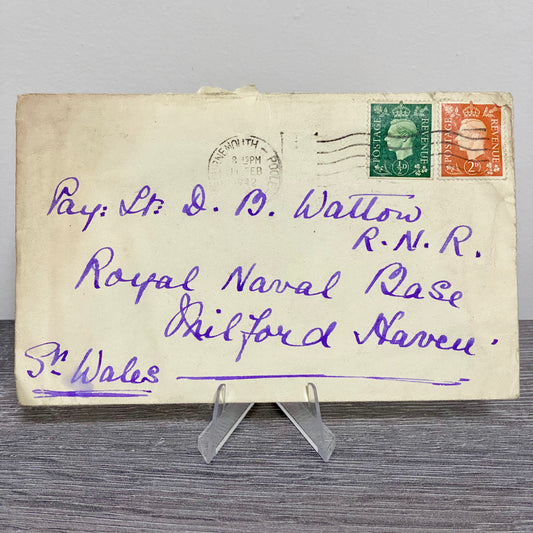 BOURNEMOUTH – POOLE
8 15PM
FEB
POSTAGE REVENUE
½D
POSTAGE REVENUE
2D
Pay: Lt: D. B. Wattow
R. N. R.
Royal Naval Base
Milford Haven
Sth Wales